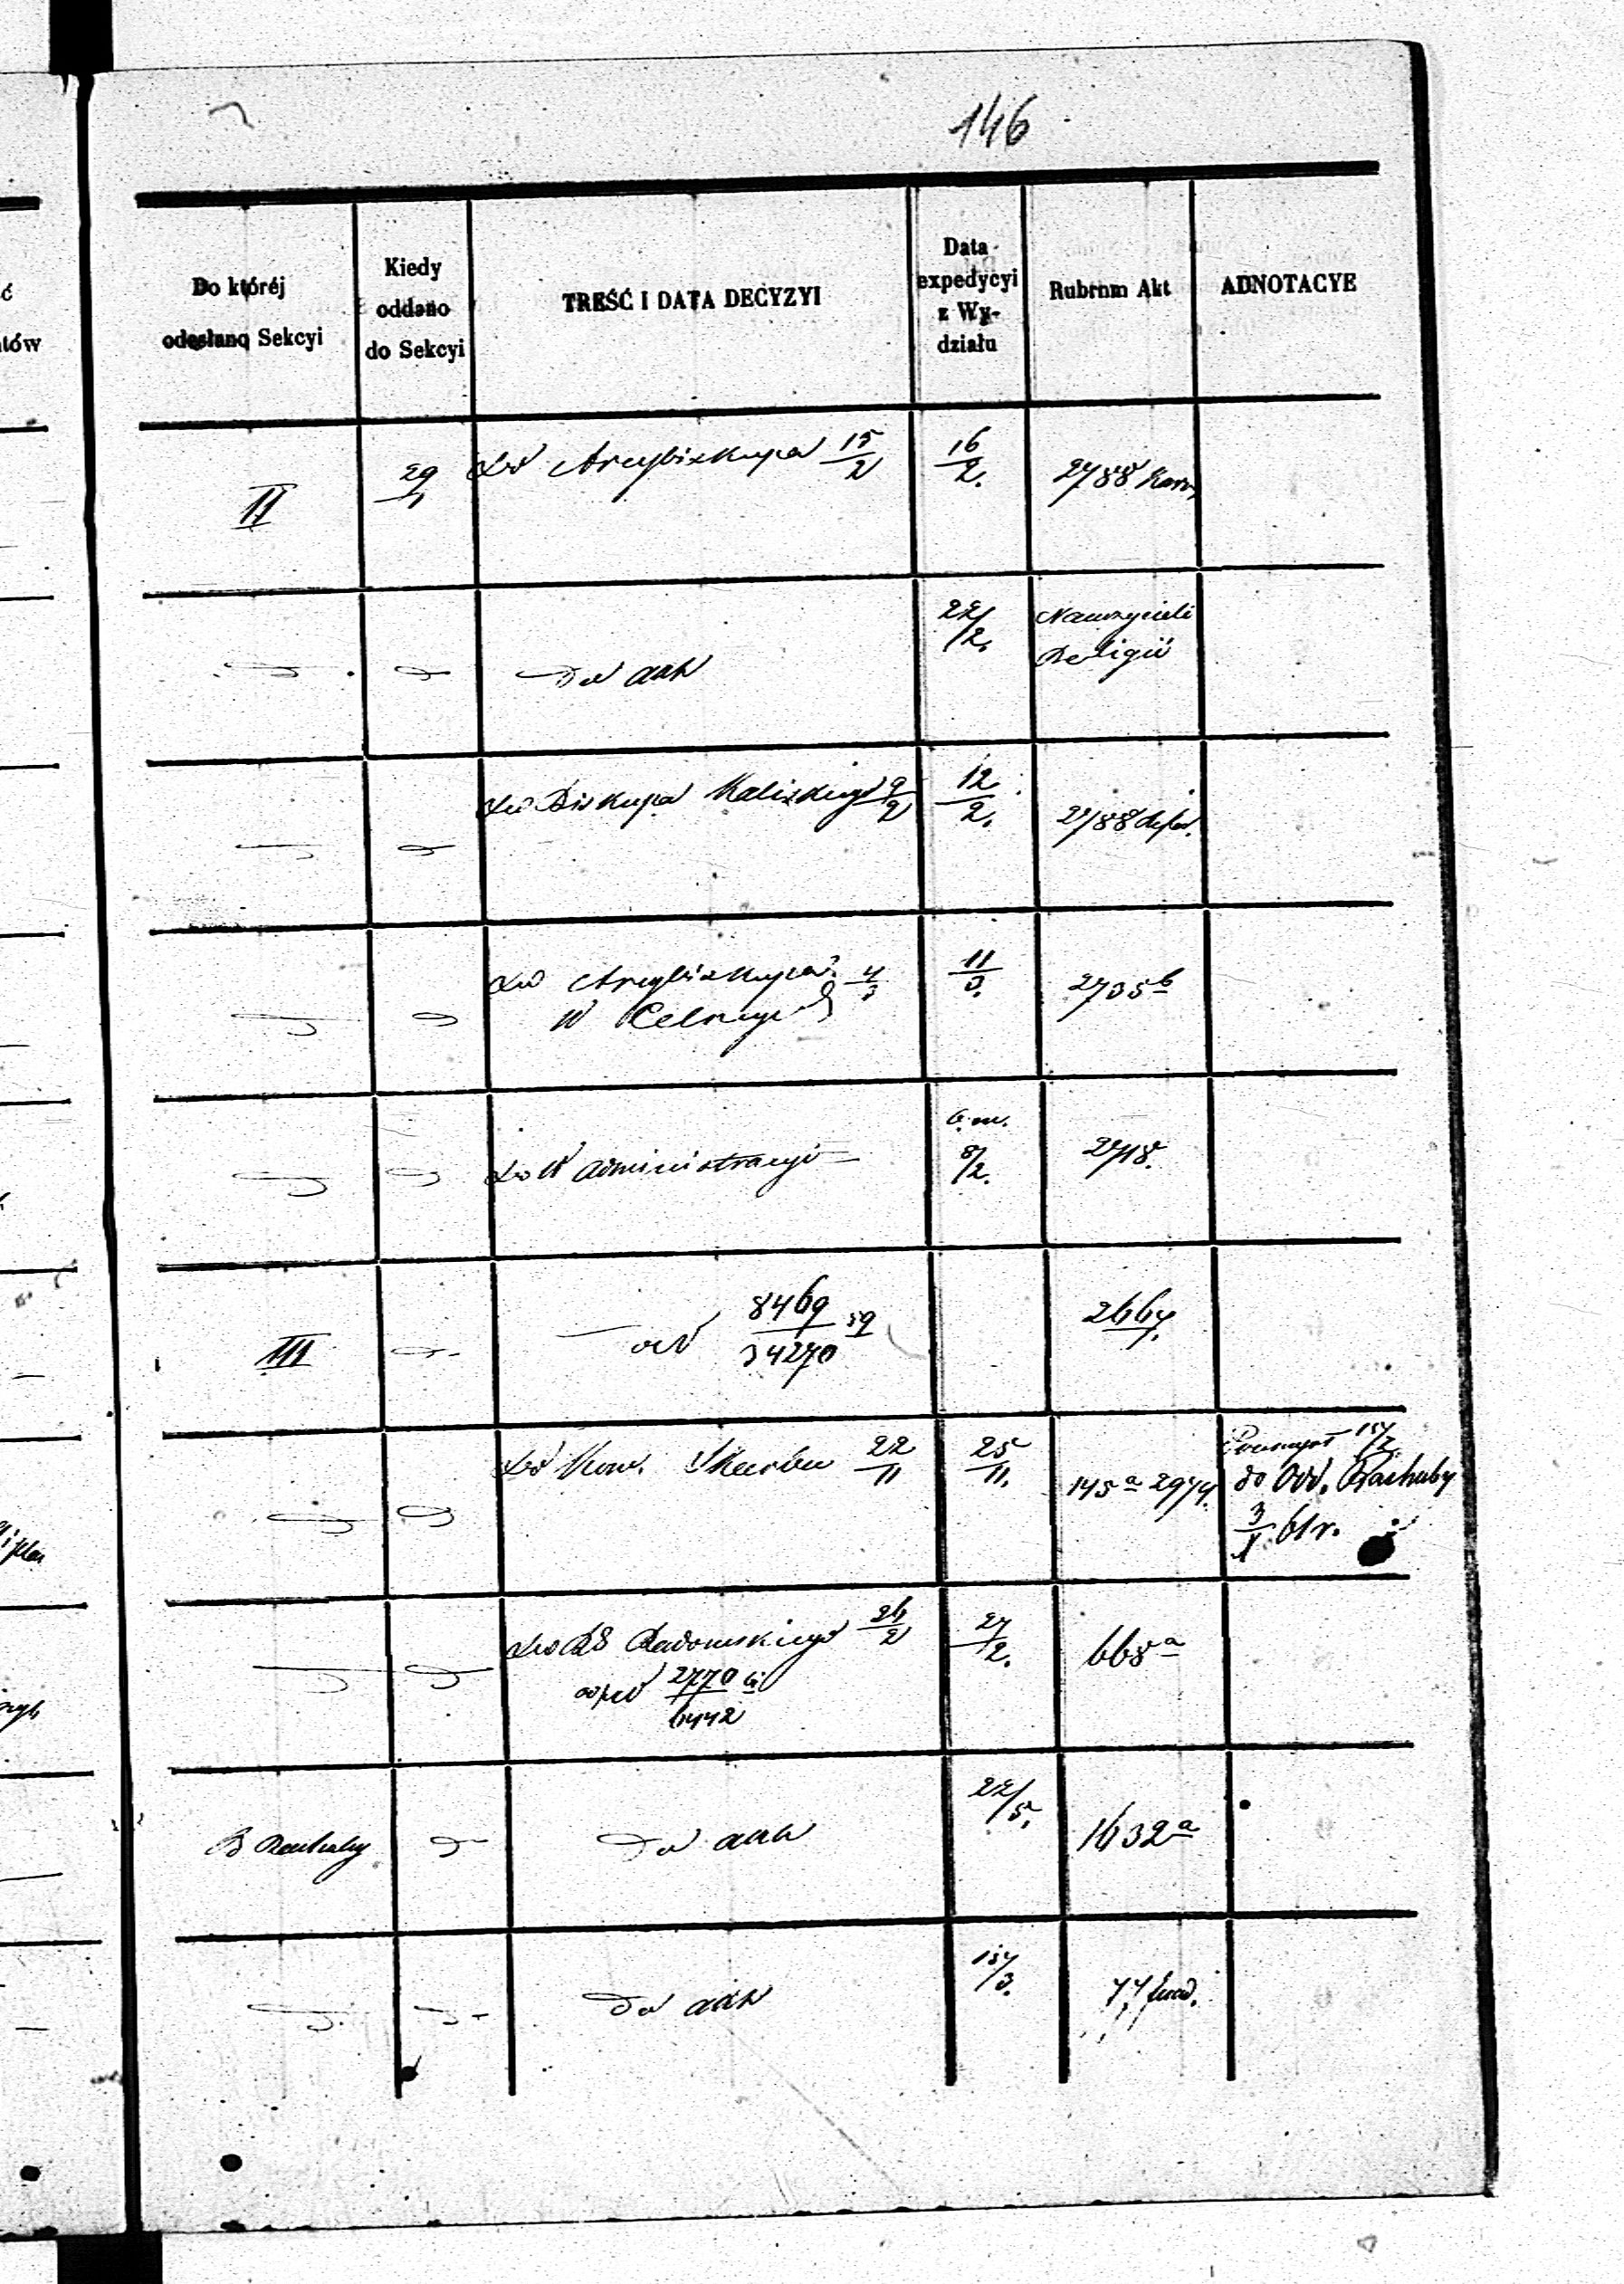 146
Do któréj
odesłano Sekcyi
Kiedy
oddano
do Sekcyi
TREŚĆ I DATA DECYZYI
Data
expedycyi
z Wy-
działu
Rubrum Akt
ADNOTACYE
II
29/1
do Arcybiskupa 15/2
16/2.
2788
do akt
22/2.
Nauczycieli
Religii
do Biskupa Kaliskiego 9/2
12/2.
2788
do Arcybiskupa 4/3
W Celnego
11/3.
2735 b
b. m.
8/2.
do W Administracyi
2718.
III
ad 8469/34270 59
2664.
do Kom. Skarbu 22/11
25/11.
145 a 2974.
15/2
do Odd. Rachuby
3/X 61 r.
do RG Radomskiego 26/2
2770/6442
27/2.
668 a
B Rachuby
do akt
22/5.
1632 a
do akt
15/3.
77